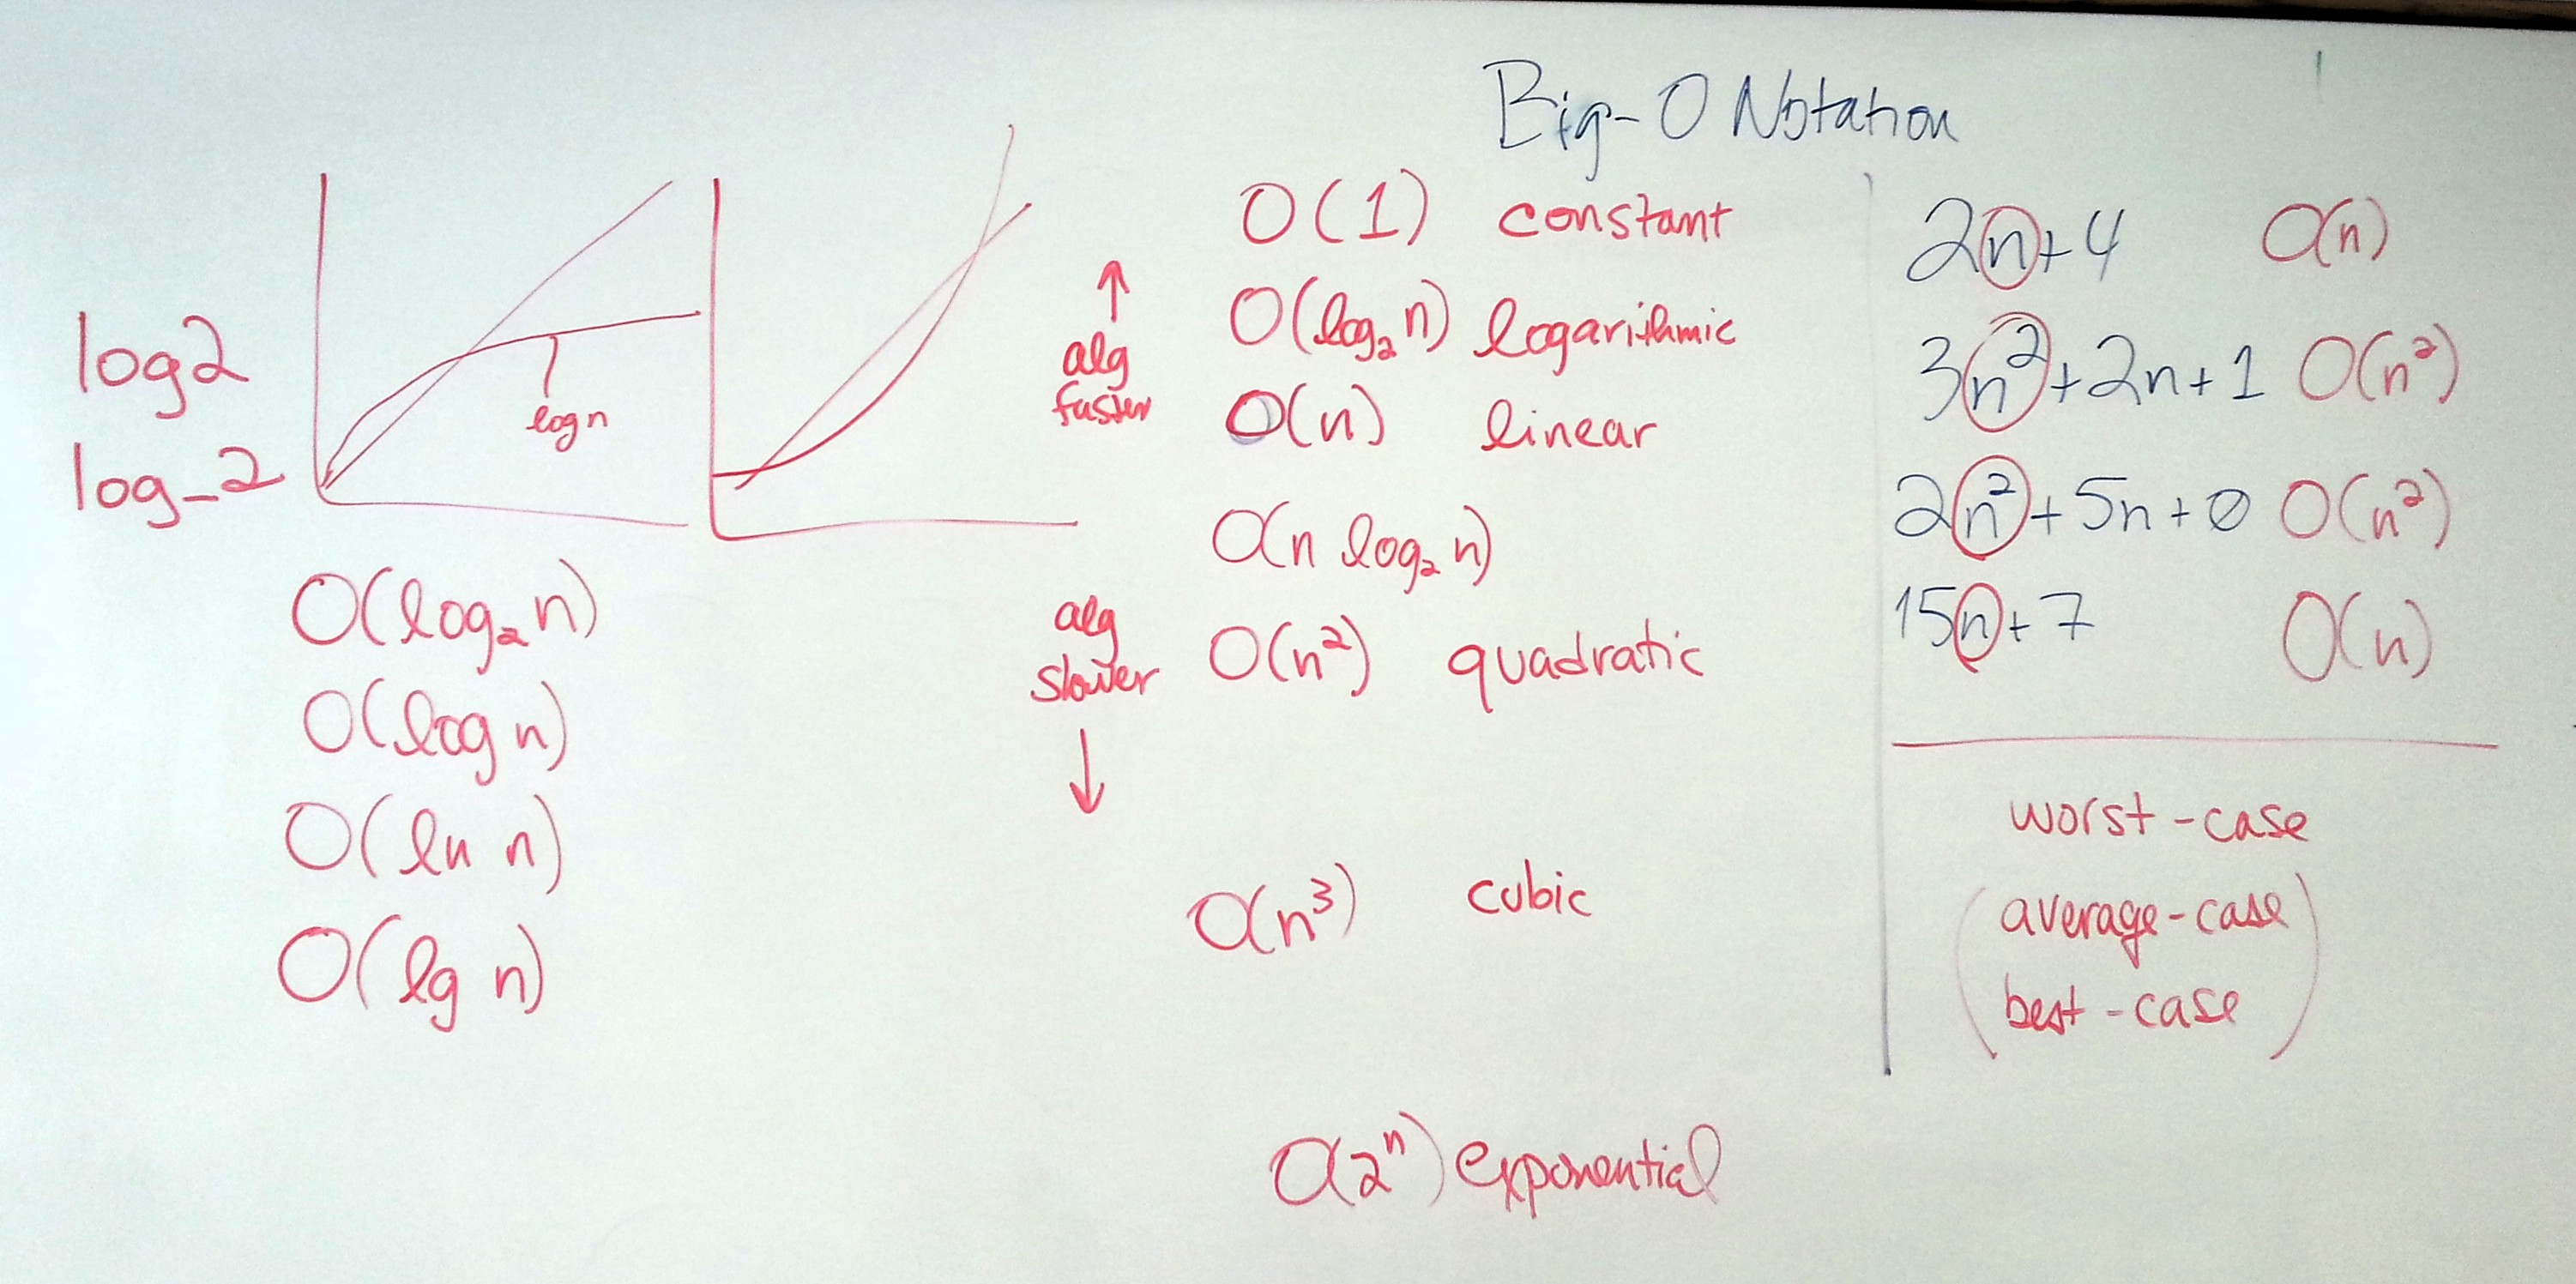 Big-O Notation
log2
log_2
log n
O(log₂ n)
O(log n)
O(ln n)
O(lg n)
↑
alg
faster
alg
slower
↓
O(1) constant
O(log₂ n) logarithmic
O(n) linear
O(n log₂ n)
O(n²) quadratic
O(n³) cubic
O(2ⁿ) exponential
2n+4 O(n)
3n²+2n+1 O(n²)
2n²+5n+0 O(n²)
15n+7 O(n)
worst-case
(average-case
best-case)